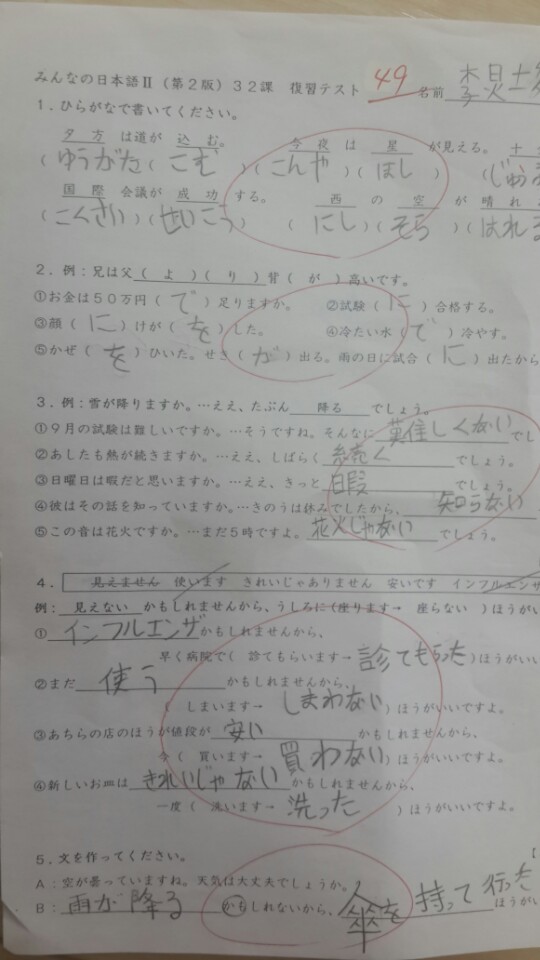 みんなの日本語Ⅱ（第２版）３２課　復習テスト　49　名前　李昊士
１．ひらがなで書いてください。
夕方 は道が 込む。　今夜 は 星 が見える。　十
（ゆうがた（こむ　）（こんや）（ほし　）（じゅう
国際 会議が 成功 する。　西 の 空 が 晴れ
（こくさい）（せいこう　（にし）（そら）（はれる
２．例：兄は父（よ）（り）背（が）高いです。
①お金は５０万円（で）足りますか。　②試験（に）合格する。
③顔（に）けが（を）した。　④冷たい水（で）冷やす。
⑤かぜ（を）ひいた。せき（が）出る。雨の日に試合（に）出たから
３．例：雪が降りますか。…ええ、たぶん　降る　でしょう。
①９月の試験は難しいですか。…そうですね。そんなに 難しくない でし
②あしたも熱が続きますか。…ええ、しばらく 続く でしょう。
③日曜日は暇だと思いますか。…ええ、きっと 暇 でしょう。
④彼はその話を知っていますか。…きのうは休みでしたから、 知らない
⑤この音は花火ですか。…まだ５時ですよ。 花火じゃない でしょう。
４．　見えません　使います　きれいじゃありません　安いです　インフルエンザ
例：　見えない　かもしれませんから、うしろに（座ります→　座らない　）ほうがい
①インフルエンザかもしれませんから、
早く病院で（　診てもらいます→ 診てもらった）ほうがい
②まだ 使う かもしれませんから、
（　しまいます→ しまわない）ほうがいいですよ。
③あちらの店のほうが値段が 安い かもしれませんから、
今（　買います→ 買わない）ほうがいいですよ。
④新しいお皿は きれいじゃない かもしれませんから、
一度（　洗います→ 洗った　）ほうがいいですよ。
５．文を作ってください。
A：空が曇っていますね。天気は大丈夫でしょうか。
B：雨が降る かもしれないから、 傘を持って行った ほうがい